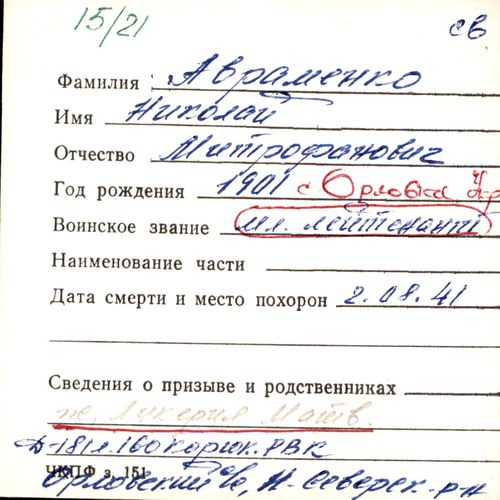 15/21 св
Фамилия Авраменко
Имя Николай
Отчество Митрофанович
Год рождения 1901 с Орловка
Воинское звание мл. лейтенант
Наименование части
Дата смерти и место похорон 2.08.41
Сведения о призыве и родственниках
ж. Лукерия Матв.
Д-181л.160 Корюк. РВК
ЧКПФ з. 151
Орловский Н. Северск. р-н